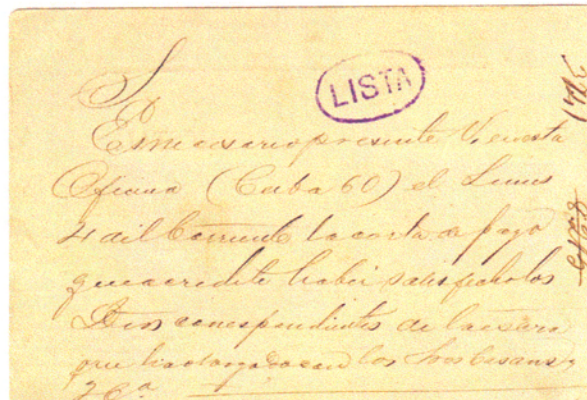 S
LISTA
Es necesario presente V. en esta
Oficina (Cuba 60) el Lunes
4 del Corriente la carta de pago
que acredite haber satisfecho los
correspondientes de la
que ha otorgado con los Sres